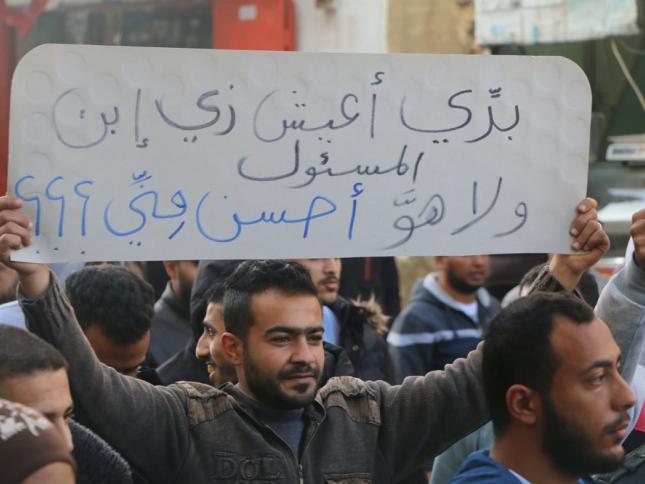 بدِّي أعيش زي إبن
المسئول
ولا هوَّ أحسن منِّي ؟؟؟
DOL